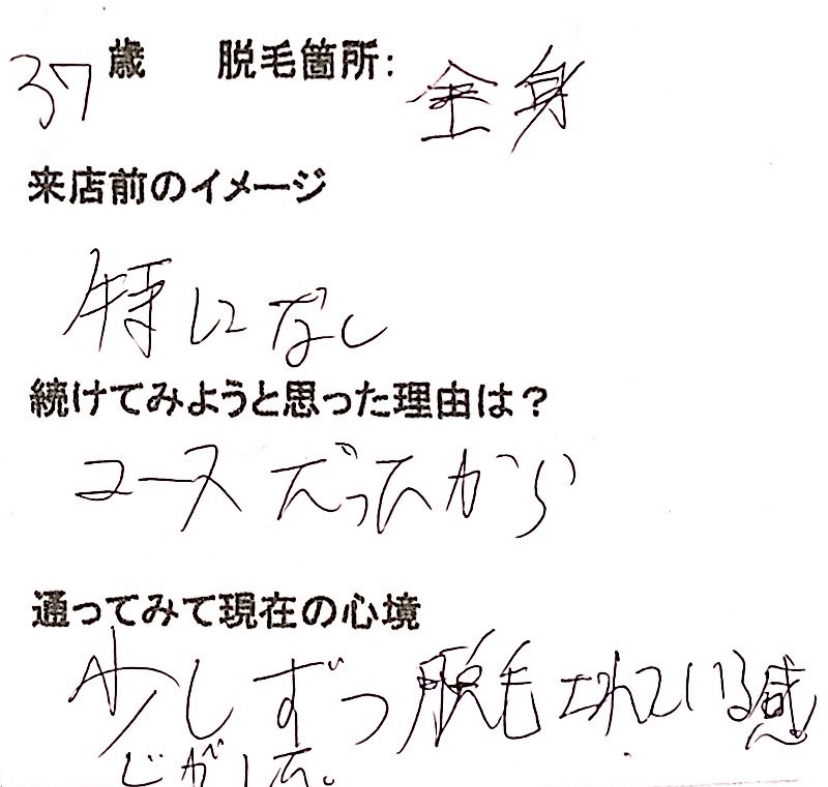 37歳 脱毛箇所: 全身
来店前のイメージ
特になし
続けてみようと思った理由は?
コースだったから
通ってみて現在の心境
少しずつ脱毛されている感
じがした。